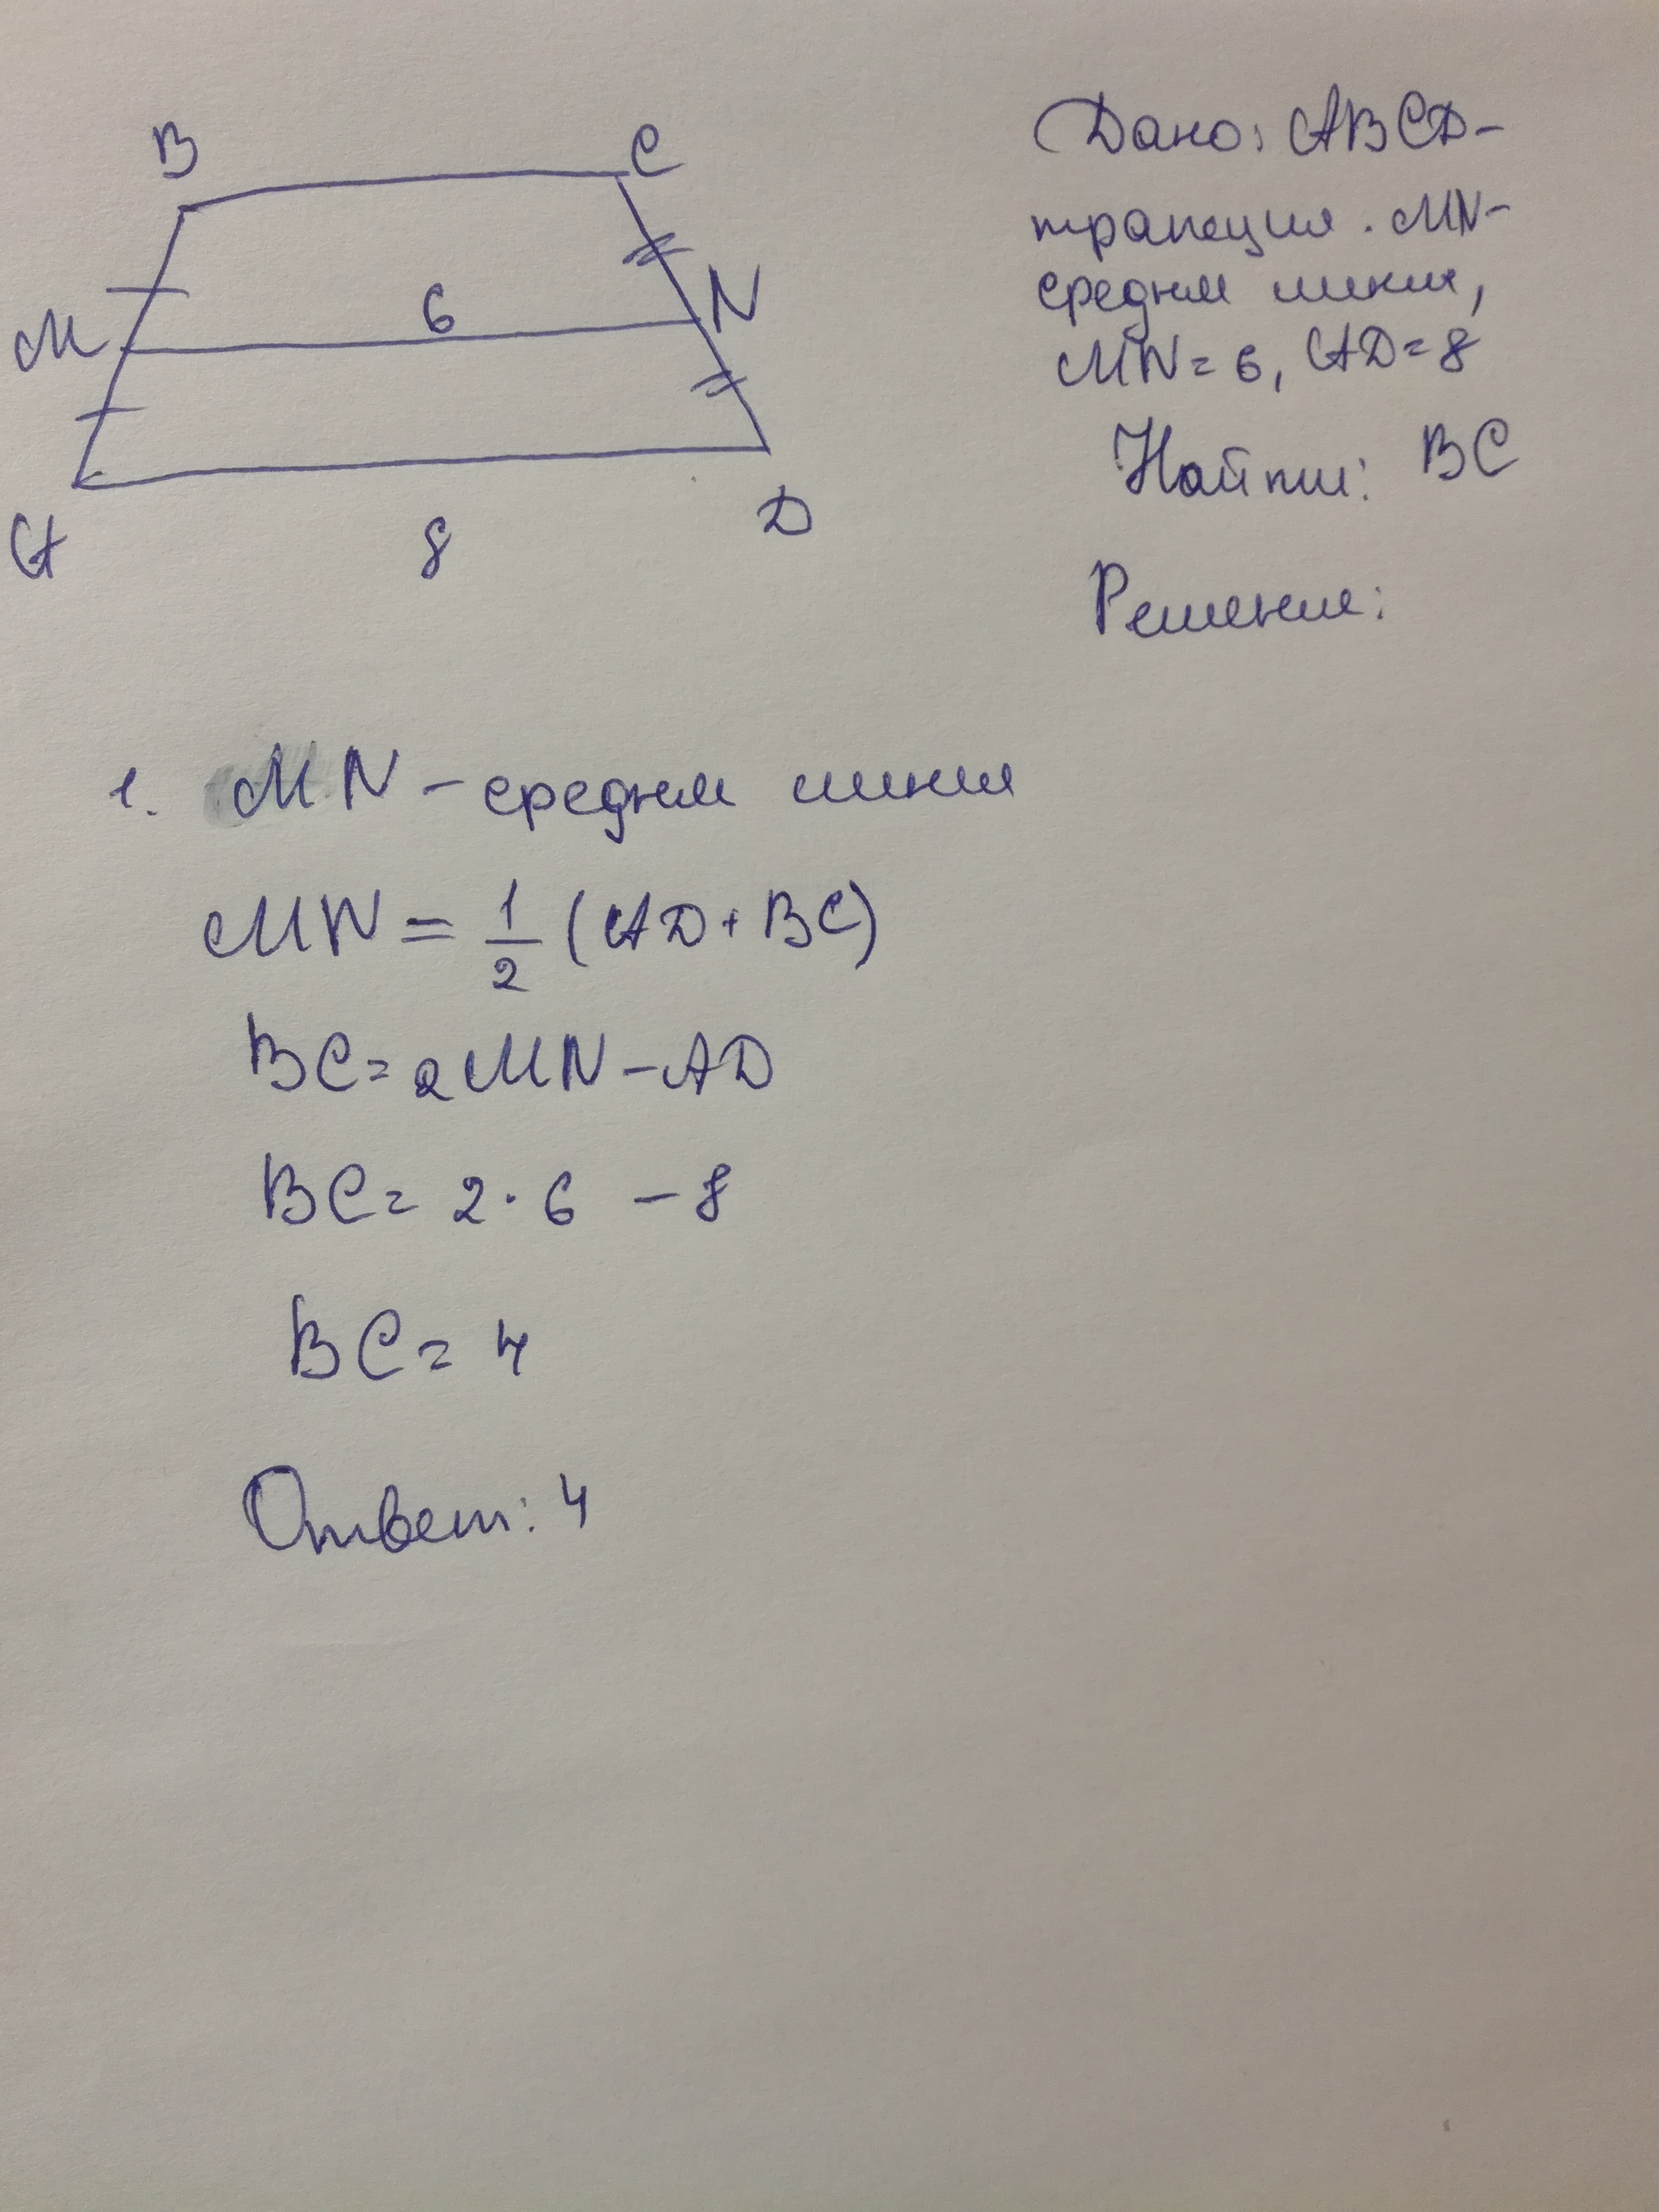 B
C
M
6
N
A
8
D
Дано: ABCD-
трапеция. MN-
средняя линия,
MN = 6, AD = 8
Найти: BC
Решение:
1. MN - средняя линия
MN = 1/2 (AD + BC)
BC = 2MN - AD
BC = 2 · 6 - 8
BC = 4
Ответ: 4